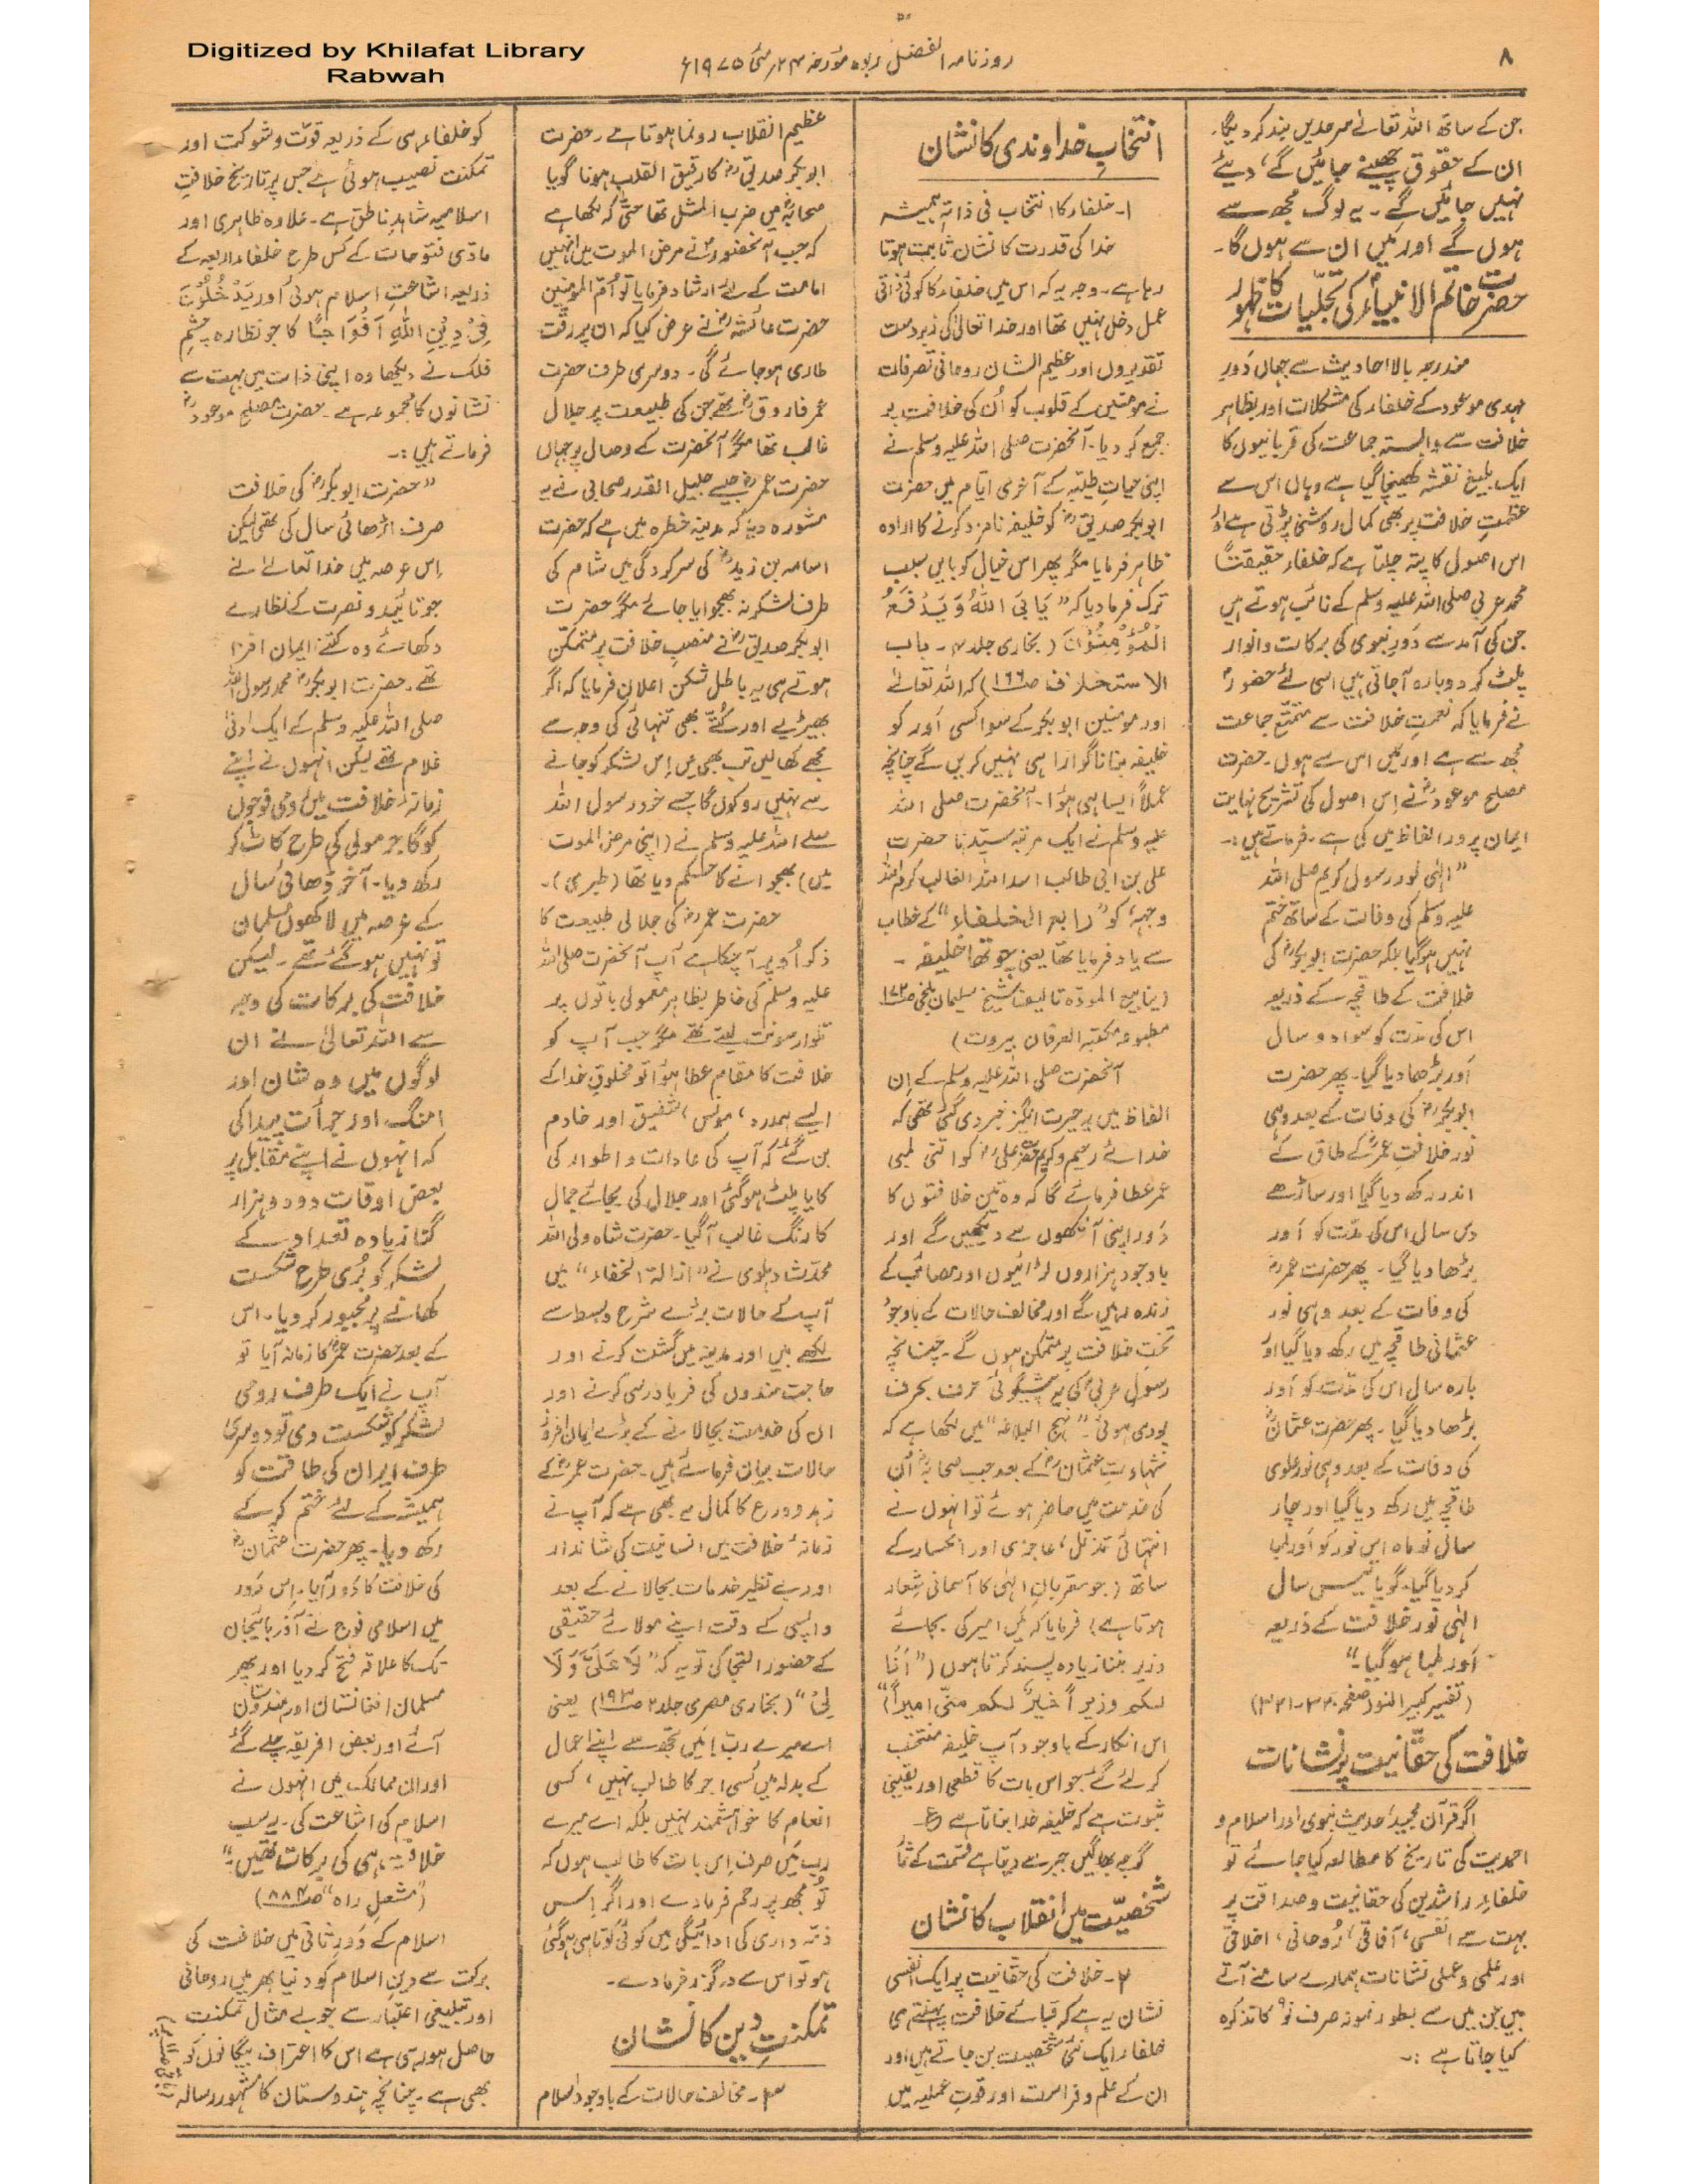 Digitized by Khilafat Library
Rabwah
روزنامہ الفضل ربوہ مورخہ ۲۴ مئی ۱۹۷۵ء
۸
جن کے ساتھ اللہ تعالےٰ سرحدیں بند کر دیگا۔
ان کے حقوق چھینے جائیں گے، دیئے
نہیں جائیں گے۔ یہ لوگ مجھ سے
ہوں گے اور مَیں ان سے ہوں گا۔
حضرت خاتم الانبیاءؐ کی تجلّیات کا ظہور
مندرجہ بالا احادیث سے جہاں دَورِ
مہدی موعود کے خلفاء کی مشکلات اور بظاہر
خلافت سے وابستہ جماعت کی قربانیوں کا
ایک بلیغ نقشہ کھینچا گیا ہے وہاں اس سے
عظمتِ خلافت پر بھی کمال روشنی پڑتی ہے اور
اس اصول کا پتہ چلتا ہے کہ خلفاء حقیقتاً
محمد عربی صلی اللہ علیہ وسلم کے نائب ہوتے ہیں
جن کی آمد سے دَورِ نبوی کی برکات و انوار
پلٹ کر دوبارہ آجاتی ہیں اسی لئے حضورؐ
نے فرمایا کہ نعمتِ خلافت سے متمتّع جماعت
مجھ سے ہے اور مَیں اس سے ہوں۔ حضرت
مصلح موعودؓ نے اِس اصول کی تشریح نہایت
ایمان پرور الفاظ میں کی ہے۔ فرماتے ہیں :۔
”الٰہی نور رسول کریم صلی اللہ
علیہ وسلم کی وفات کے ساتھ ختم
نہیں ہو گیا بلکہ حضرت ابوبکرؓ کی
خلافت کے طاقچہ کے ذریعہ
اس کی مدّت کو سوا دو سال
اَور بڑھا دیا گیا۔ پھر حضرت
ابوبکرؓ کی وفات کے بعد وہی
نور خلافتِ عمرؓ کے طاق کے
اندر رکھ دیا گیا اور ساڑھے
دس سال اس کی مدّت کو اَور
بڑھا دیا گیا۔ پھر حضرت عمرؓ
کی وفات کے بعد وہی نور
عثمانی طاقچہ میں رکھ دیا گیا اور
بارہ سال اس کی مدّت کو اَور
بڑھا دیا گیا۔ پھر حضرت عثمانؓ
کی وفات کے بعد وہی نور علوی
طاقچہ میں رکھ دیا گیا اور چار
سال نو ماہ اس نور کو اَور لمبا
کر دیا گیا۔ گویا تیس سال
الٰہی نور خلافت کے ذریعہ
اَور لمبا ہو گیا۔“
(تفسیر کبیر النور صفحہ ۳۲۰-۳۲۱)
خلافت کی حقّانیت پر نشانات
اگر قرآن مجید، حدیث نبوی اور اسلام و
احمدیت کی تاریخ کا مطالعہ کیا جائے تو
خلفاءِ راشدین کی حقانیت و صداقت پر
بہت سے انفسی، آفاقی، رُوحانی، اخلاقی
اور علمی و عملی نشانات ہمارے سامنے آتے
ہیں جن میں سے بطور نمونہ صرف نو کا تذکرہ
کیا جاتا ہے :۔
انتخابِ خداوندی کا نشان
۱۔ خلفاء کا انتخاب فی ذاتہٖ ہمیشہ
خدا کی قدرت کا نشان ثابت ہوتا
رہا ہے۔ وجہ یہ کہ اس میں خلفاء کا کوئی ذاتی
عمل دخل نہیں تھا اور خدا تعالیٰ کی زبردست
تقدیروں اور عظیم الشان روحانی تصرفات
نے مومنین کے قلوب کو اُن کی خلافت پر
جمع کر دیا۔ آنحضرت صلی اللہ علیہ وسلم نے
اپنی حیاتِ طیّبہ کے آخری ایّام میں حضرت
ابوبکر صدیقؓ کو خلیفہ نامزد کرنے کا ارادہ
ظاہر فرمایا مگر پھر اس خیال کو بایں سبب
ترک فرما دیا کہ ”یَابَی اللّٰہُ وَ یَدْفَعُ
الْمُؤْمِنُوْنَ (بخاری جلد ۴۔ باب
الاستخلاف ص۱۶۶) کہ اللہ تعالےٰ
اور مومنین ابوبکر کے سوا کسی اَور کو
خلیفہ بنانا گوارا ہی نہیں کریں گے چنانچہ
عملاً ایسا ہی ہؤا۔ آنحضرت صلی اللہ
علیہ وسلم نے ایک مرتبہ سیّدنا حضرت
علی بن ابی طالب اسد اللہ الغالب کرم اللہ
وجہہٗ کو ”رابع الخلفاء“ کے خطاب
سے یاد فرمایا تھا یعنی چوتھا خلیفہ ۔
(ینابیع المودّہ تالیف شیخ سلیمان بلخی ص۱۷۲
مطبوعہ مکتبۃ العرفان بیروت)
آنحضرت صلی اللہ علیہ وسلم کے اِن
الفاظ میں یہ حیرت انگیز خبر دی گئی تھی کہ
خدائے رحیم و کریم حضرت علیؓ کو اتنی لمبی
عمر عطا فرمائے گا کہ وہ تین خلافتوں کا
دَور اپنی آنکھوں سے دیکھیں گے اور
باوجود ہزاروں لڑائیوں اور مصائب کے
زندہ رہیں گے اور مخالف حالات کے باوجود
تختِ خلافت پر متمکن ہوں گے۔ چنانچہ
رسولِ عربیؐ کی یہ پیشگوئی حرف بحرف
پوری ہوئی۔ ”نہج البلاغہ“ میں لکھا ہے کہ
شہادتِ عثمانؓ کے بعد جب صحابہؓ اُن
کی خدمت میں حاضر ہوئے تو انہوں نے
انتہائی تذلّل، عاجزی اور انکسار کے
ساتھ (جو مقربانِ الٰہی کا آسمانی شعار
ہوتا ہے) فرمایا کہ مَیں امیر کی بجائے
وزیر بننا زیادہ پسند کرتا ہوں (”اَنَا
لکم وزیراً خیرٌ لکم منّی امیراً“)
اس انکار کے باوجود آپ خلیفہ منتخب
کر لئے گئے جو اس بات کا قطعی اور یقینی
ثبوت ہے کہ خلیفہ خدا بناتا ہے ع۔
گرچہ بھاگیں جبر سے دیتا ہے قسمت کے ثمار
شخصیّت میں انقلاب کا نشان
۲۔ خلافت کی حقّانیت پر ایک انفسی
نشان یہ ہے کہ قبائے خلافت پہنتے ہی
خلفاء ایک نئی شخصیت بن جاتے ہیں اور
ان کے علم و فراست اور قوتِ عملیہ میں
عظیم انقلاب رونما ہوتا ہے۔ حضرت
ابوبکر صدیقؓ کا رقیق القلب ہونا گویا
صحابہؓ میں ضرب المثل تھا حتّٰی کہ لکھا ہے
کہ جب آنحضورؐ نے مرض الموت میں انہیں
امامت کے لئے ارشاد فرمایا تو اُمّ المومنین
حضرت عائشہؓ نے عرض کیا کہ ان پر رقّت
طاری ہو جائے گی۔ دوسری طرف حضرت
عمر فاروقؓ تھے جن کی طبیعت پر جلال
غالب تھا مگر آنحضرت کے وصال پر جہاں
حضرت عمرؓ جیسے جلیل القدر صحابی نے یہ
مشورہ دیا کہ مدینہ خطرہ میں ہے کہ حضرت
اسامہ بن زیدؓ کی سرکردگی میں شام کی
طرف لشکر نہ بھجوایا جائے مگر حضرت
ابوبکر صدیقؓ نے منصبِ خلافت پر متمکّن
ہوتے ہی یہ باطل شکن اعلان فرمایا کہ اگر
بھیڑیے اور کُتّے بھی تنہائی کی وجہ سے
مجھے کھا لیں تب بھی مَیں اِس لشکر کو جانے
سے نہیں روکوں گا جسے خود رسول اللہ
صلے اللہ علیہ وسلم نے (اپنی مرض الموت
میں) بھجوانے کا حکم دیا تھا (طبری)۔
حضرت عمرؓ کی جلالی طبیعت کا
ذکر اُوپر آ چکا ہے آپ آنحضرت صلی اللہ
علیہ وسلم کی خاطر بظاہر معمولی باتوں پر
تلوار سونت لیتے تھے مگر جب آپ کو
خلافت کا مقام عطا ہؤا تو مخلوقِ خدا کے
ایسے ہمدرد، مونس، شفیق اور خادم
بن گئے کہ آپ کی عادات و اطوار کی
کایا پلٹ ہو گئی اور جلال کی بجائے جمال
کا رنگ غالب آگیا۔ حضرت شاہ ولی اللہ
محدّث دہلوی نے ”ازالۃ الخفاء“ میں
آپ کے حالات بڑے شرح و بسط سے
لکھے ہیں اور مدینہ میں گشت کرنے اور
حاجت مندوں کی فریاد رسی کرنے اور
ان کی خدمت بجالانے کے بڑے ایمان افروز
حالات بیان فرمائے ہیں۔ حضرت عمرؓ کے
زہد و ورع کا کمال یہ بھی ہے کہ آپ نے
زمانۂ خلافت میں انسانیت کی شاندار
اور بے نظیر خدمات بجالانے کے بعد
واپسی کے وقت اپنے مولائے حقیقی
کے حضور التجا کی تو یہ کہ ”لَا عَلَیَّ وَلَا
لِیْ“ (بخاری مصری جلد ۲ ص۱۹۳) یعنی
اے میرے رب! مَیں تجھ سے اپنے اعمال
کے بدلہ میں کسی اجر کا طالب نہیں، کسی
انعام کا خواہشمند نہیں بلکہ اے میرے
رب مَیں صرف اِس بات کا طالب ہوں کہ
تُو مجھ پر رحم فرما دے اور اگر اِس
ذمّہ داری کی ادائیگی میں کوئی کوتاہی ہو گئی
ہو تو اس سے درگزر فرما دے۔
تمکنتِ دین کا نشان
۳۔ مخالف حالات کے باوجود اسلام
کو خلفاء ہی کے ذریعہ قوّت و شوکت اور
تمکنت نصیب ہوئی ہے جس پر تاریخ خلافتِ
اسلامیہ شاہدِ ناطق ہے۔ علاوہ ظاہری اور
مادّی فتوحات کے کس طرح خلفاءِ اربعہ کے
ذریعہ اشاعتِ اسلام ہوئی اور یَدْخُلُوْنَ
فِیْ دِیْنِ اللّٰہِ اَفْوَاجًا کا جو نظارہ چشمِ
فلک نے دیکھا وہ اپنی ذات میں بہت سے
نشانوں کا مجموعہ ہے۔ حضرت مصلح موعودؓ
فرماتے ہیں :۔
”حضرت ابوبکرؓ کی خلافت
صرف اڑھائی سال کی تھی لیکن
اِس عرصہ میں خدا تعالےٰ نے
جو تائید و نصرت کے نظارے
دکھائے وہ کتنے ایمان افزا
تھے۔ حضرت ابوبکرؓ محمد رسول اللہ
صلی اللہ علیہ وسلم کے ایک ادنیٰ
غلام تھے لیکن انہوں نے اپنے
زمانۂ خلافت میں رومی فوجوں
کو گاجر مولی کی طرح کاٹ کر
رکھ دیا۔ آخر ڈھائی سال
کے عرصہ میں لاکھوں مسلمان
تو نہیں ہو گئے تھے۔ لیکن
خلافت کی برکات کی وجہ
سے اللہ تعالیٰ نے ان
لوگوں میں وہ شان اور
امنگ اور جرأت پیدا کی
کہ انہوں نے اپنے مقابل پر
بعض اوقات دو دو ہزار
گنا زیادہ تعداد کے
لشکر کو بُری طرح شکست
کھانے پر مجبور کر دیا۔ اس
کے بعد حضرت عمرؓ کا زمانہ آیا تو
آپ نے ایک طرف رومی
لشکر کو شکست دی تو دوسری
طرف ایران کی طاقت کو
ہمیشہ کے لئے ختم کر کے
رکھ دیا۔ پھر حضرت عثمانؓ
کی خلافت کا دَور آیا۔ اِس دَور
میں اسلامی فوج نے آذربائیجان
تک کا علاقہ فتح کر دیا اور پھر
مسلمان افغانستان اور ہندوستان
آئے اور بعض افریقہ چلے گئے
اور ان ممالک میں انہوں نے
اسلام کی اشاعت کی۔ یہ سب
خلافت ہی کی برکات تھیں۔“
(”مشعلِ راہ“ ص۸۸۴)
اسلام کے دَورِ ثانی میں خلافت کی
برکت سے دینِ اسلام کو دنیا بھر میں روحانی
اور تبلیغی اعتبار سے جو بے مثال تمکنت
حاصل ہو رہی ہے اس کا اعتراف بیگانوں کو
بھی ہے۔ چنانچہ ہندوستان کا مشہور رسالہ